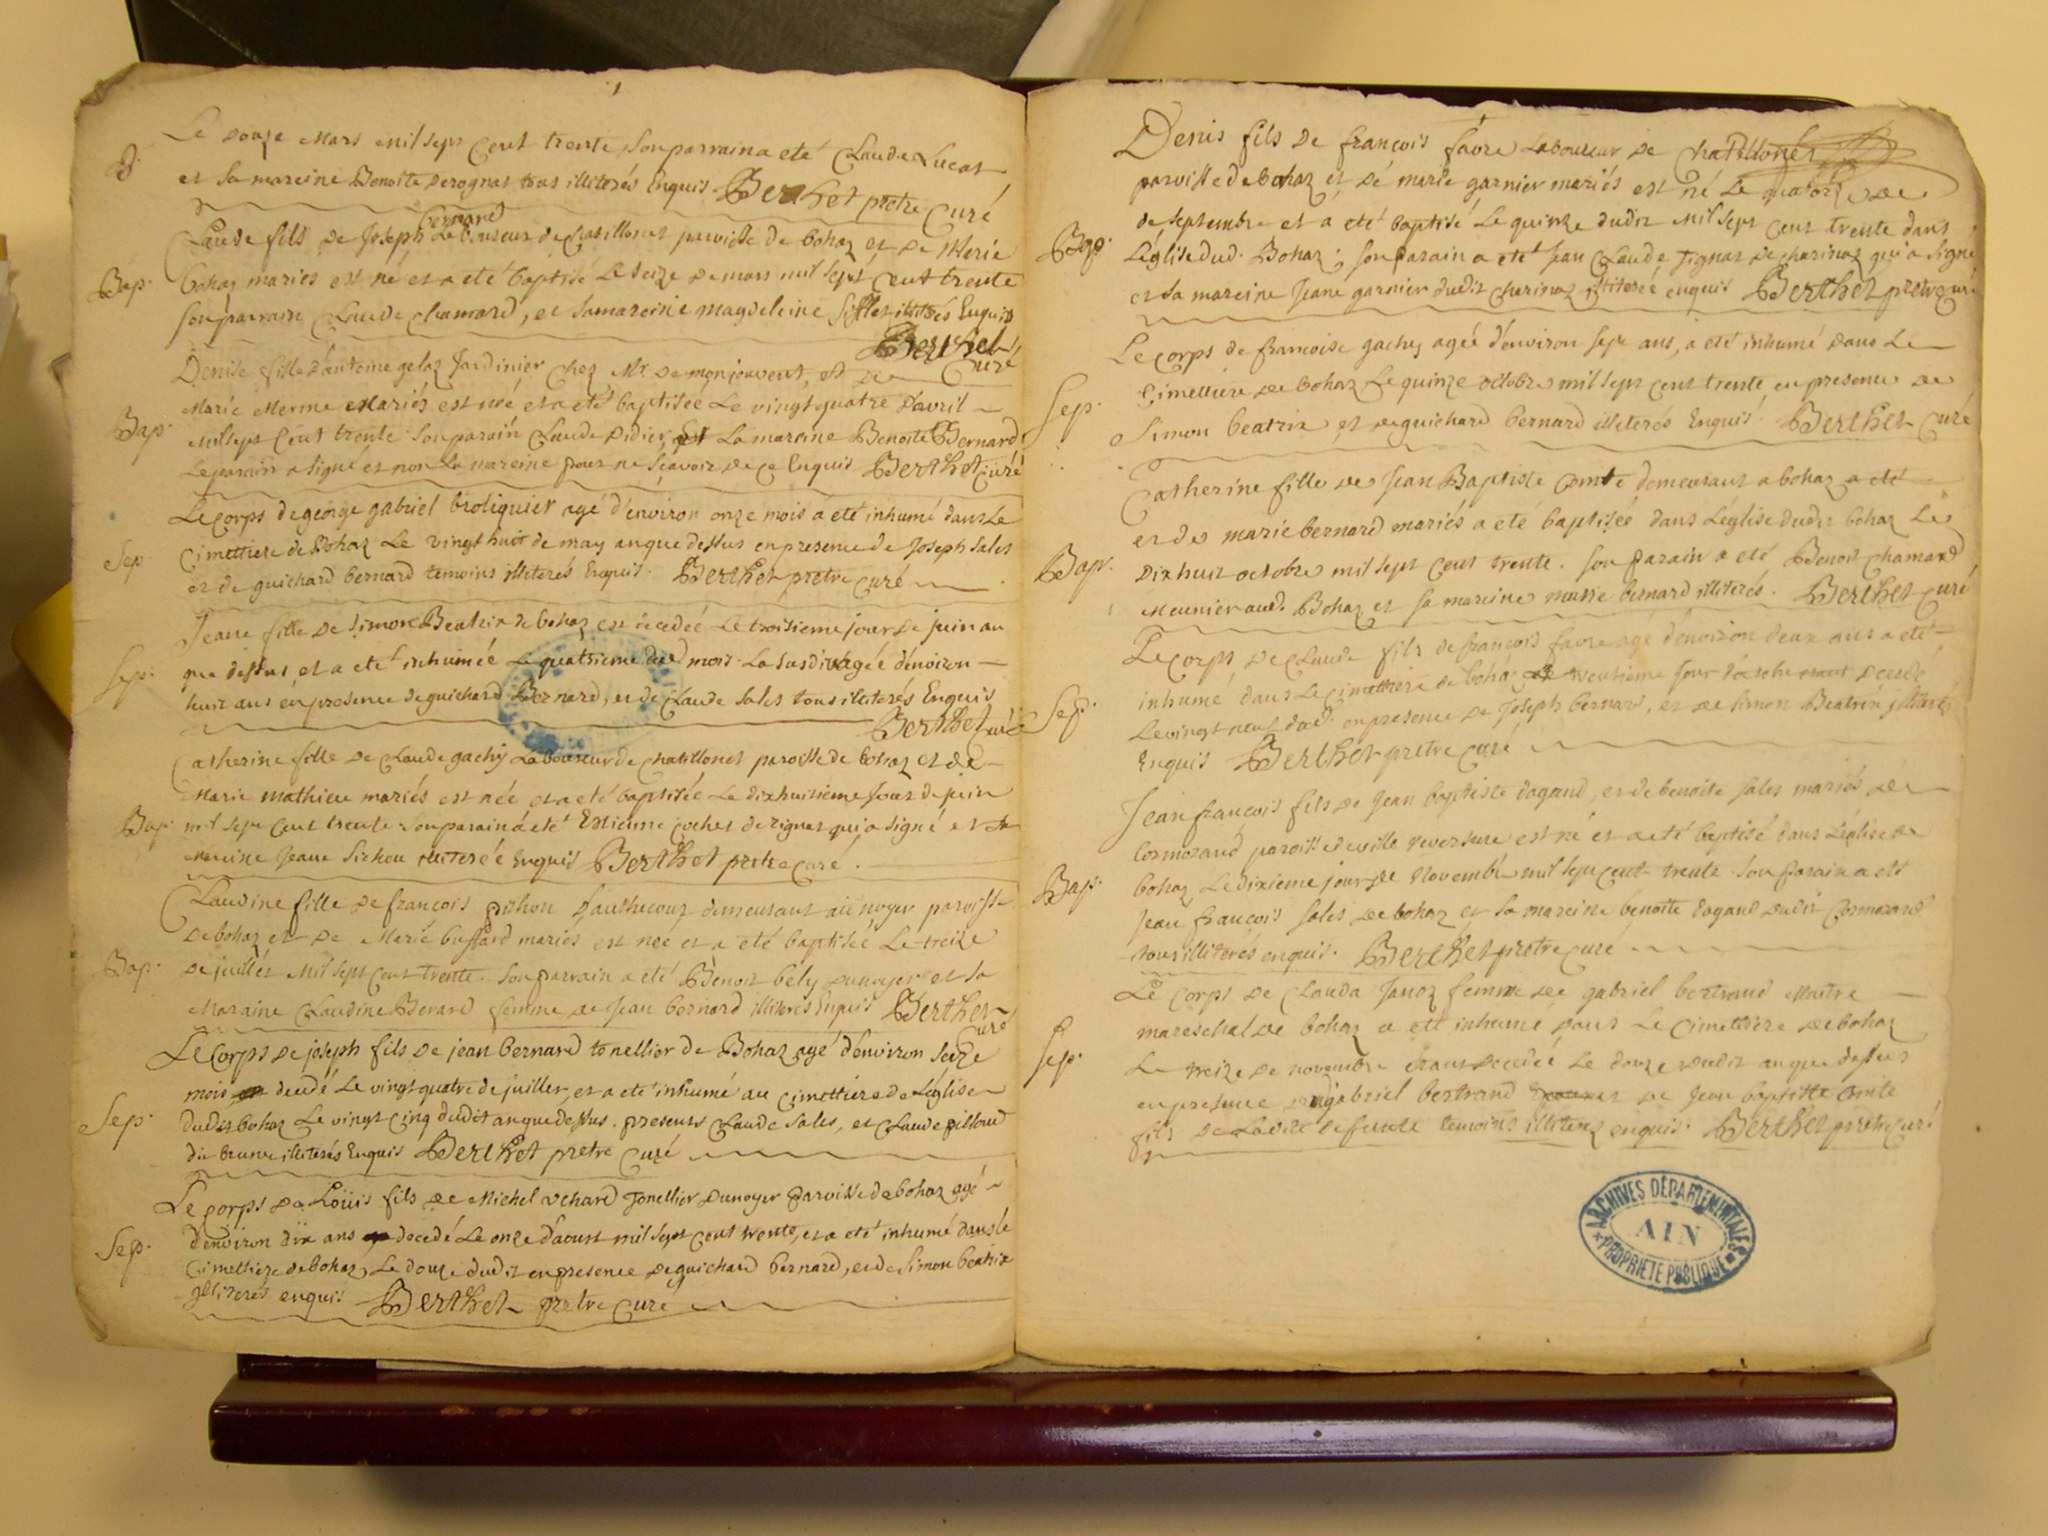 Le douze mars mil sept cent trente, son parrain a eté Claude Lucas
et sa mareine Benoite Derognat tous illiterés Enquis. Berthet pretre curé
Bernard
Claude fils de Joseph Laboureur de Chatillonet paroisse de bohaz et de Marie
Bap. bohaz mariés est né et a eté baptisé Le seize de mars mil sept cent trente
son parrain Claude Chamard, et sa mareine magdeleine illiterés Enquis
Berthet
curé
Denise fille d'antoine gelaz Jardinier chez Mr. de monjouvent, et de
Marie Merme Mariés est née et a eté baptisée Le vingt quatre d'avril
Bap. mil sept Cent trente son parain Claude Didier, et La mareine Benoite Bernard
Le parain a signé et non La mareine pour ne sçavoir de ce Enquis Berthet curé
Le corps de george gabriel broliquier agé d'environ onze mois a eté inhumé dans Le
Sep. Cimettiere de Bohaz Le vingt huit de may an que dessus en presence de Joseph Sales
et de guichard bernard temoins illiterés Enquis. Berthet pretre curé
Jeane fille de Simon Beatrix de bohaz est decedée Le troisieme jour de juin an
Sep. que dessus, et a eté inhumée Le quatrieme dud. mois La susdite agée d'environ
huit ans en presence de guichard Bernard, et de Claude Sales tous illiterés Enquis
Berthet curé
Catherine fille de Claude gachy Laboureur de Chatillonet paroisse de bohaz et de
Marie Mathieu mariés est née et a eté baptisée Le dixhuitieme Jour de juin
Bap. mil sept cent trente son parain a eté Estienne cochet de rignat qui a signé et sa
mareine Jeane Pichou illiterée Enquis Berthet pretre curé.
Claudine fille de françois pichou d'authecour demeurant au noyer paroisse
de bohaz et de Marie buffard mariés est née et a eté baptisée Le treize
Bap. de juillet Mil sept cent trente. Son parrain a eté Benoit bely du noyer et sa
Maraine Claudine Berard femme de Jean bernard illiterés Enquis Berthet
curé
Le Corps de joseph fils de jean bernard tonellier de Bohaz agé d'environ seize
mois decedé Le vingt quatre de juillet, et a eté inhumé au cimettiere de L'église
Sep. dudit bohaz Le vingt cinq dudit an que dessus. presents Claude Sales, et Claude pilloud
dit brunet illiterés Enquis Berthet pretre curé
Le corps de Loüis fils de Michel uchard Tonellier du noyer Paroisse de bohaz agé
Sep. d'environ dix ans decedé Le onze d'aoust mil sept cent trente, et a eté inhumé dans le
Cimettiere de bohaz, Le douze dudit en presence de guichard bernard, et de Simon beatrix
illiterés enquis Berthet pretre curé
Denis fils de françois favre Laboureur de Chatillonet
paroisse de bohaz et de marie garnier mariés est né Le quatorze
de septembre et a eté baptisé Le quinze dudit mil sept cent trente dans
Bap. L'église dud. Bohaz; son parain a eté Jean Claude Tignat de charinaz qui a signé
et sa mareine Jeane garnier dudit charinaz illiterée enquis Berthet pretre curé
Le corps de francoise gachy agée d'environ sept ans, a eté inhumé dans Le
Sep. Cimettiere de bohaz Le quinze octobre mil sept cent trente en presence de
Simon beatrix et de guichard bernard illiterés Enquis. Berthet curé
Catherine fille de Jean Baptiste Comte demeurant a bohaz a eté
et de marie bernard mariés a eté baptisée dans L'église dudit bohaz Le
Bap. Dixhuit octobre mil sept cent trente. Son parain a eté Benoit Chamard
Meunier aud. Bohaz et sa mareine marie bernard illiterés. Berthet curé
Le corps de Claude fils de françois favre agé d'environ deux ans a eté
inhumé dans Le cimettiere de bohaz trentieme Jour d'octobre etant decedé
Sep. Le vingt neuf dud. en presence de Joseph bernard, et de Simon Beatrix illiterés
Enquis Berthet pretre curé
Jean françois fils de Jean baptiste dagand, et de benoite Sales mariés de
Cormorand paroisse de ville reversure est né et a eté baptisé dans L'église de
Bap. bohaz Le dixieme jour de Novembre mil sept cent trente Son parain a eté
Jean françois Sales de bohaz et sa mareine benoite dagand dudit Cormorand
tous illiterés enquis. Berthet pretre curé
Le Corps de Clauda Janoz femme de gabriel bertrand Maitre
mareschal de bohaz a eté inhumé dans Le Cimettiere de bohaz
Sep. Le treize de novembre etant decedée Le douze dudit an que dessus
en presence de gabriel bertrand et de Jean baptiste Comte
fils de Ladite defunte temoins illiterés enquis. Berthet pretre curé
ARCHIVES DÉPARTEMENTALES
AIN
PROPRIÉTÉ PUBLIQUE